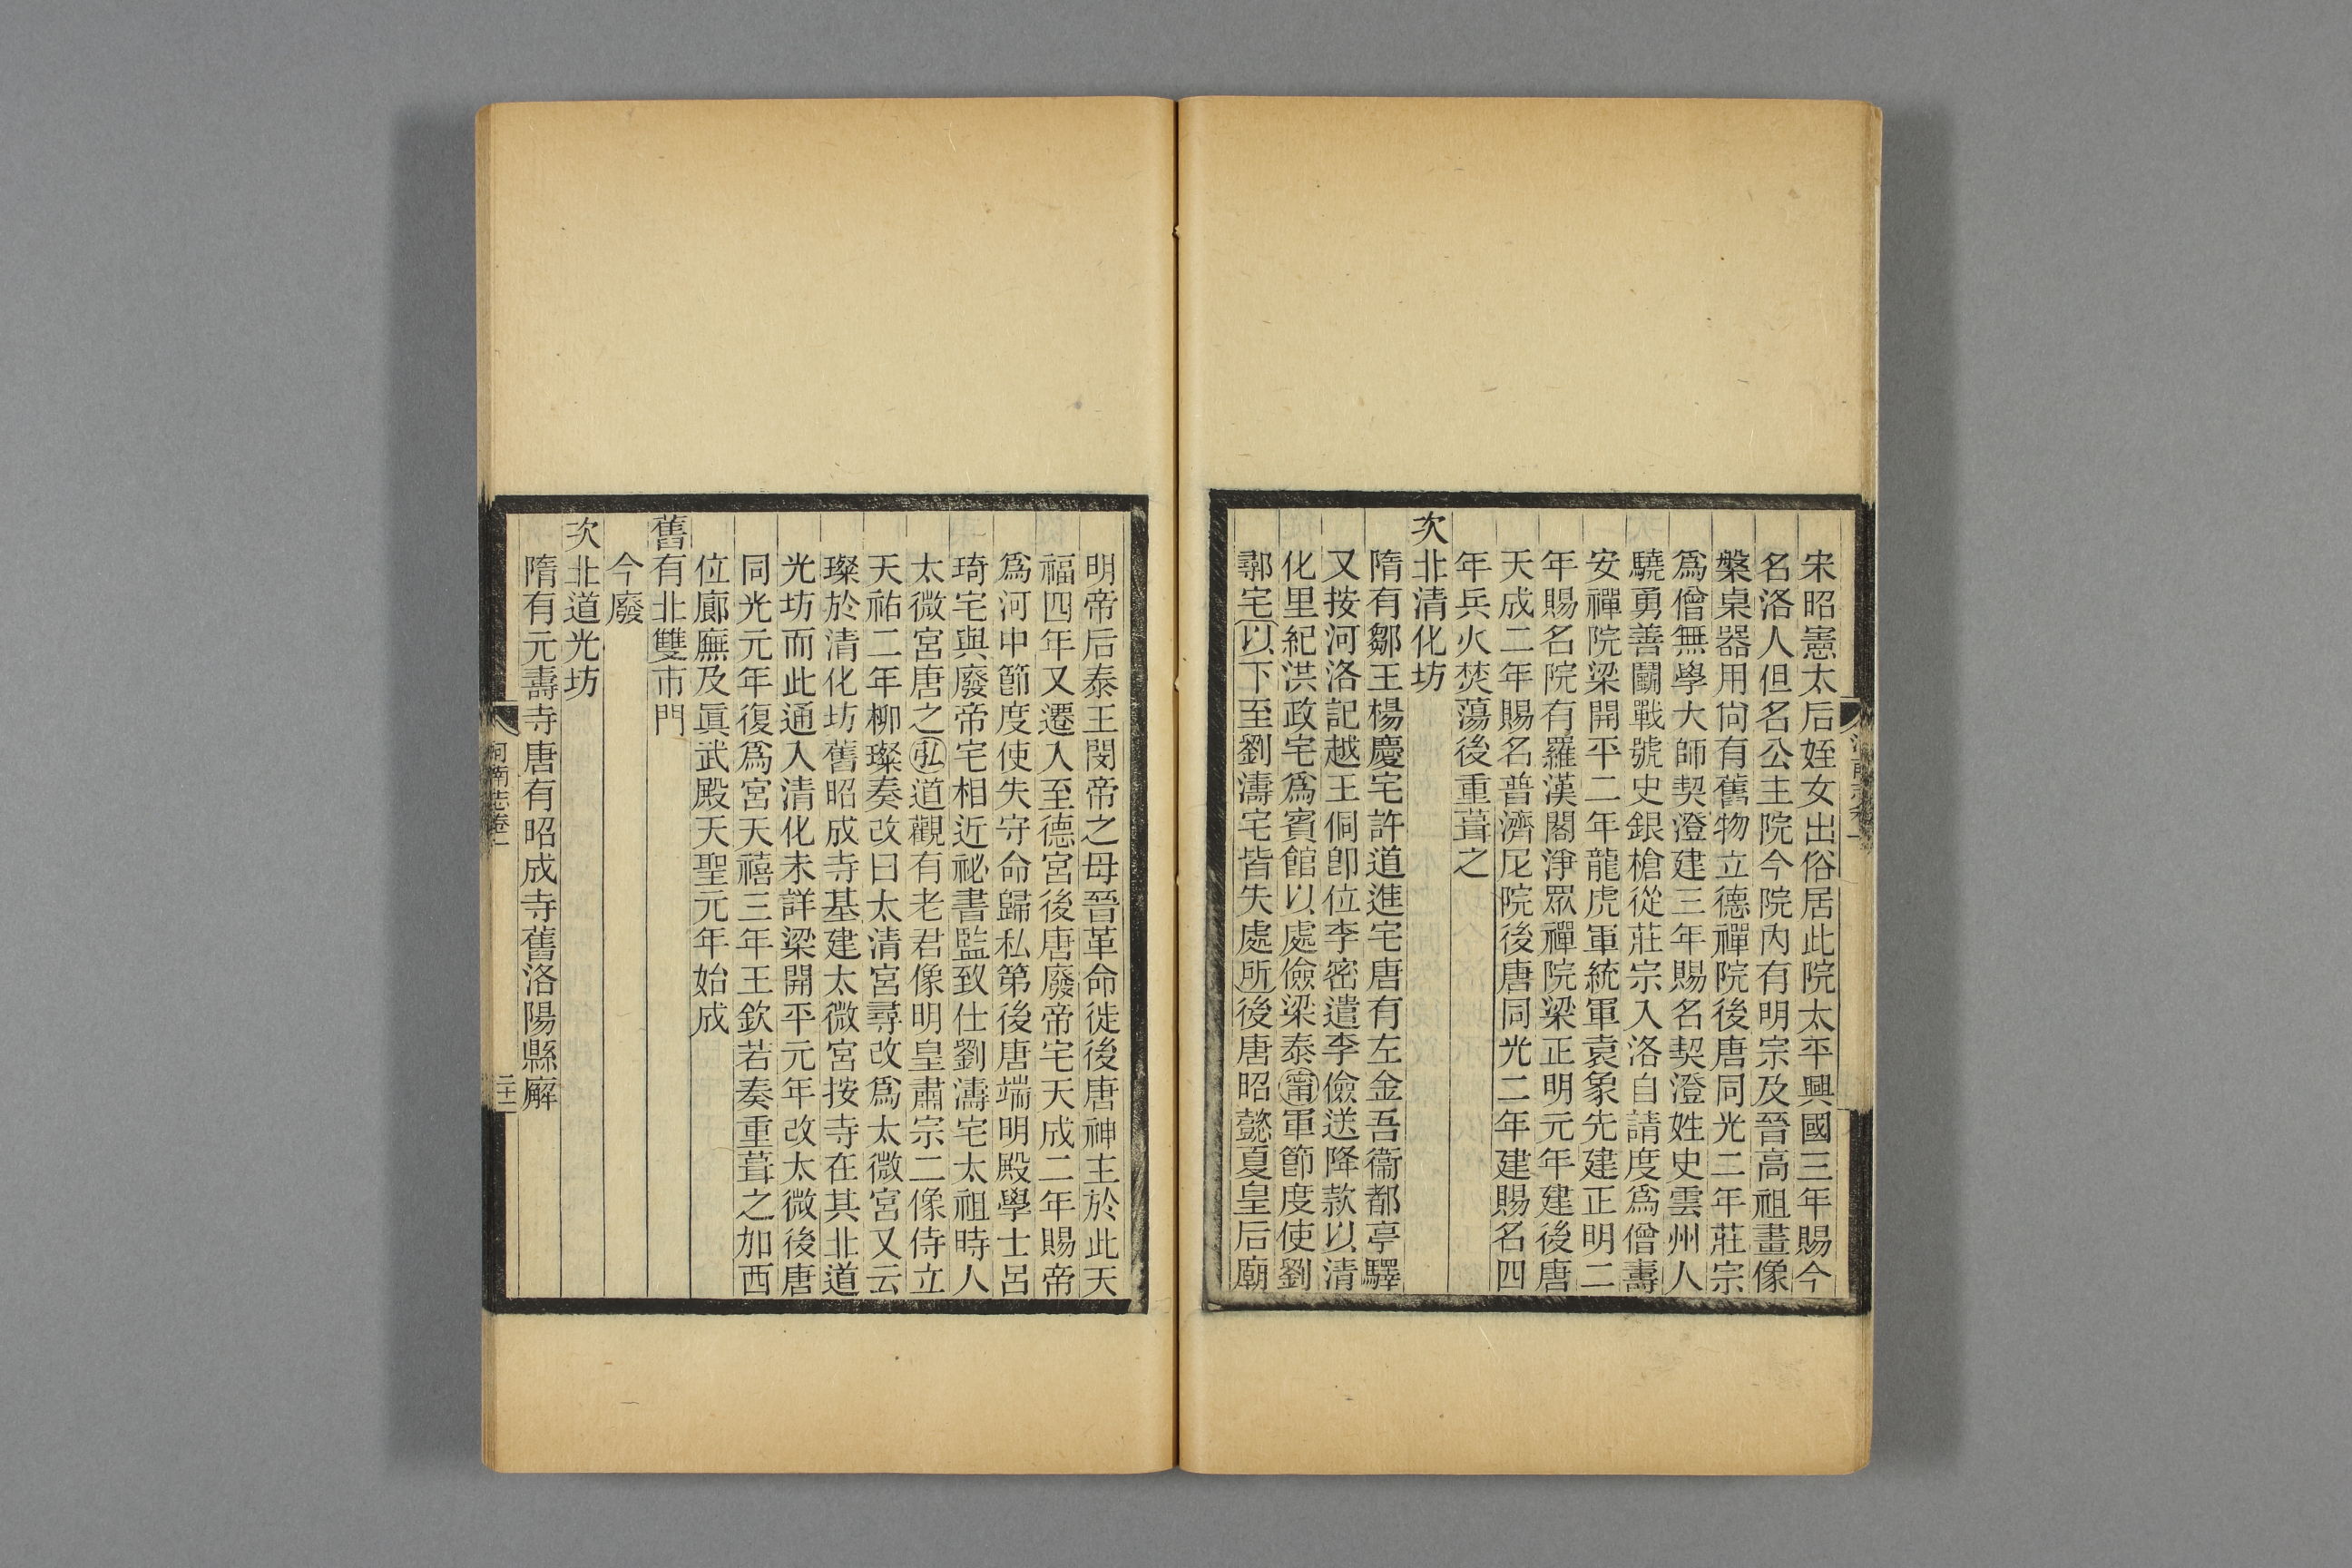 宋昭憲太后姪女出俗居此院太平興國三年賜今
名洛人但名公主院今院內有明宗及晉高祖畫像
槃桌器用尙有舊物立德禪院後唐同光二年莊宗
爲僧無學大師契澄建三年賜名契澄姓史雲州人
驍勇善鬭戰號史銀槍從莊宗入洛自請度爲僧壽
安禪院梁開平二年龍虎軍統軍袁象先建正明二
年賜名院有羅漢閣淨眾禪院梁正明元年建後唐
天成二年賜名普濟尼院後唐同光二年建賜名四
年兵火焚蕩後重葺之
次北清化坊
隋有鄒王楊慶宅許道進宅唐有左金吾衞都亭驛
又按河洛記越王侗卽位李密遣李儉送降款以清
化里紀洪政宅爲賓館以處儉梁泰甯軍節度使劉
鄩宅以下至劉濤宅皆失處所後唐昭懿夏皇后廟
明帝后泰王閔帝之母晉革命徙後唐神主於此天
福四年又遷入至德宮後唐廢帝宅天成二年賜帝
爲河中節度使失守命歸私第後唐端明殿學士呂
琦宅與廢帝宅相近祕書監致仕劉濤宅太祖時人
太微宮唐之弘道觀有老君像明皇肅宗二像侍立
天祐二年柳璨奏改曰太清宮尋改爲太微宮又云
璨於清化坊舊昭成寺基建太微宮按寺在其北道
光坊而此通入清化未詳梁開平元年改太微後唐
同光元年復爲宮天禧三年王欽若奏重葺之加西
位廊廡及眞武殿天聖元年始成
舊有北雙市門
今廢
次北道光坊
隋有元壽寺唐有昭成寺舊洛陽縣廨
河南志卷一
二十一